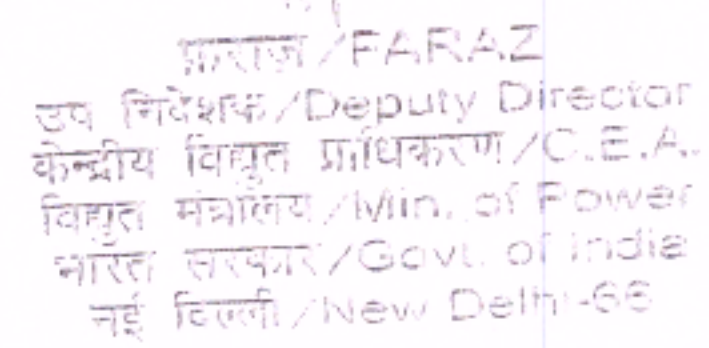 फ़राज़/FARAZ
उप निदेशक/Deputy Director
केन्द्रीय विद्युत प्राधिकरण/C.E.A.
विद्युत मंत्रालय/Min. of Power
भारत सरकार/Govt. of India
नई दिल्ली/New Delhi-66